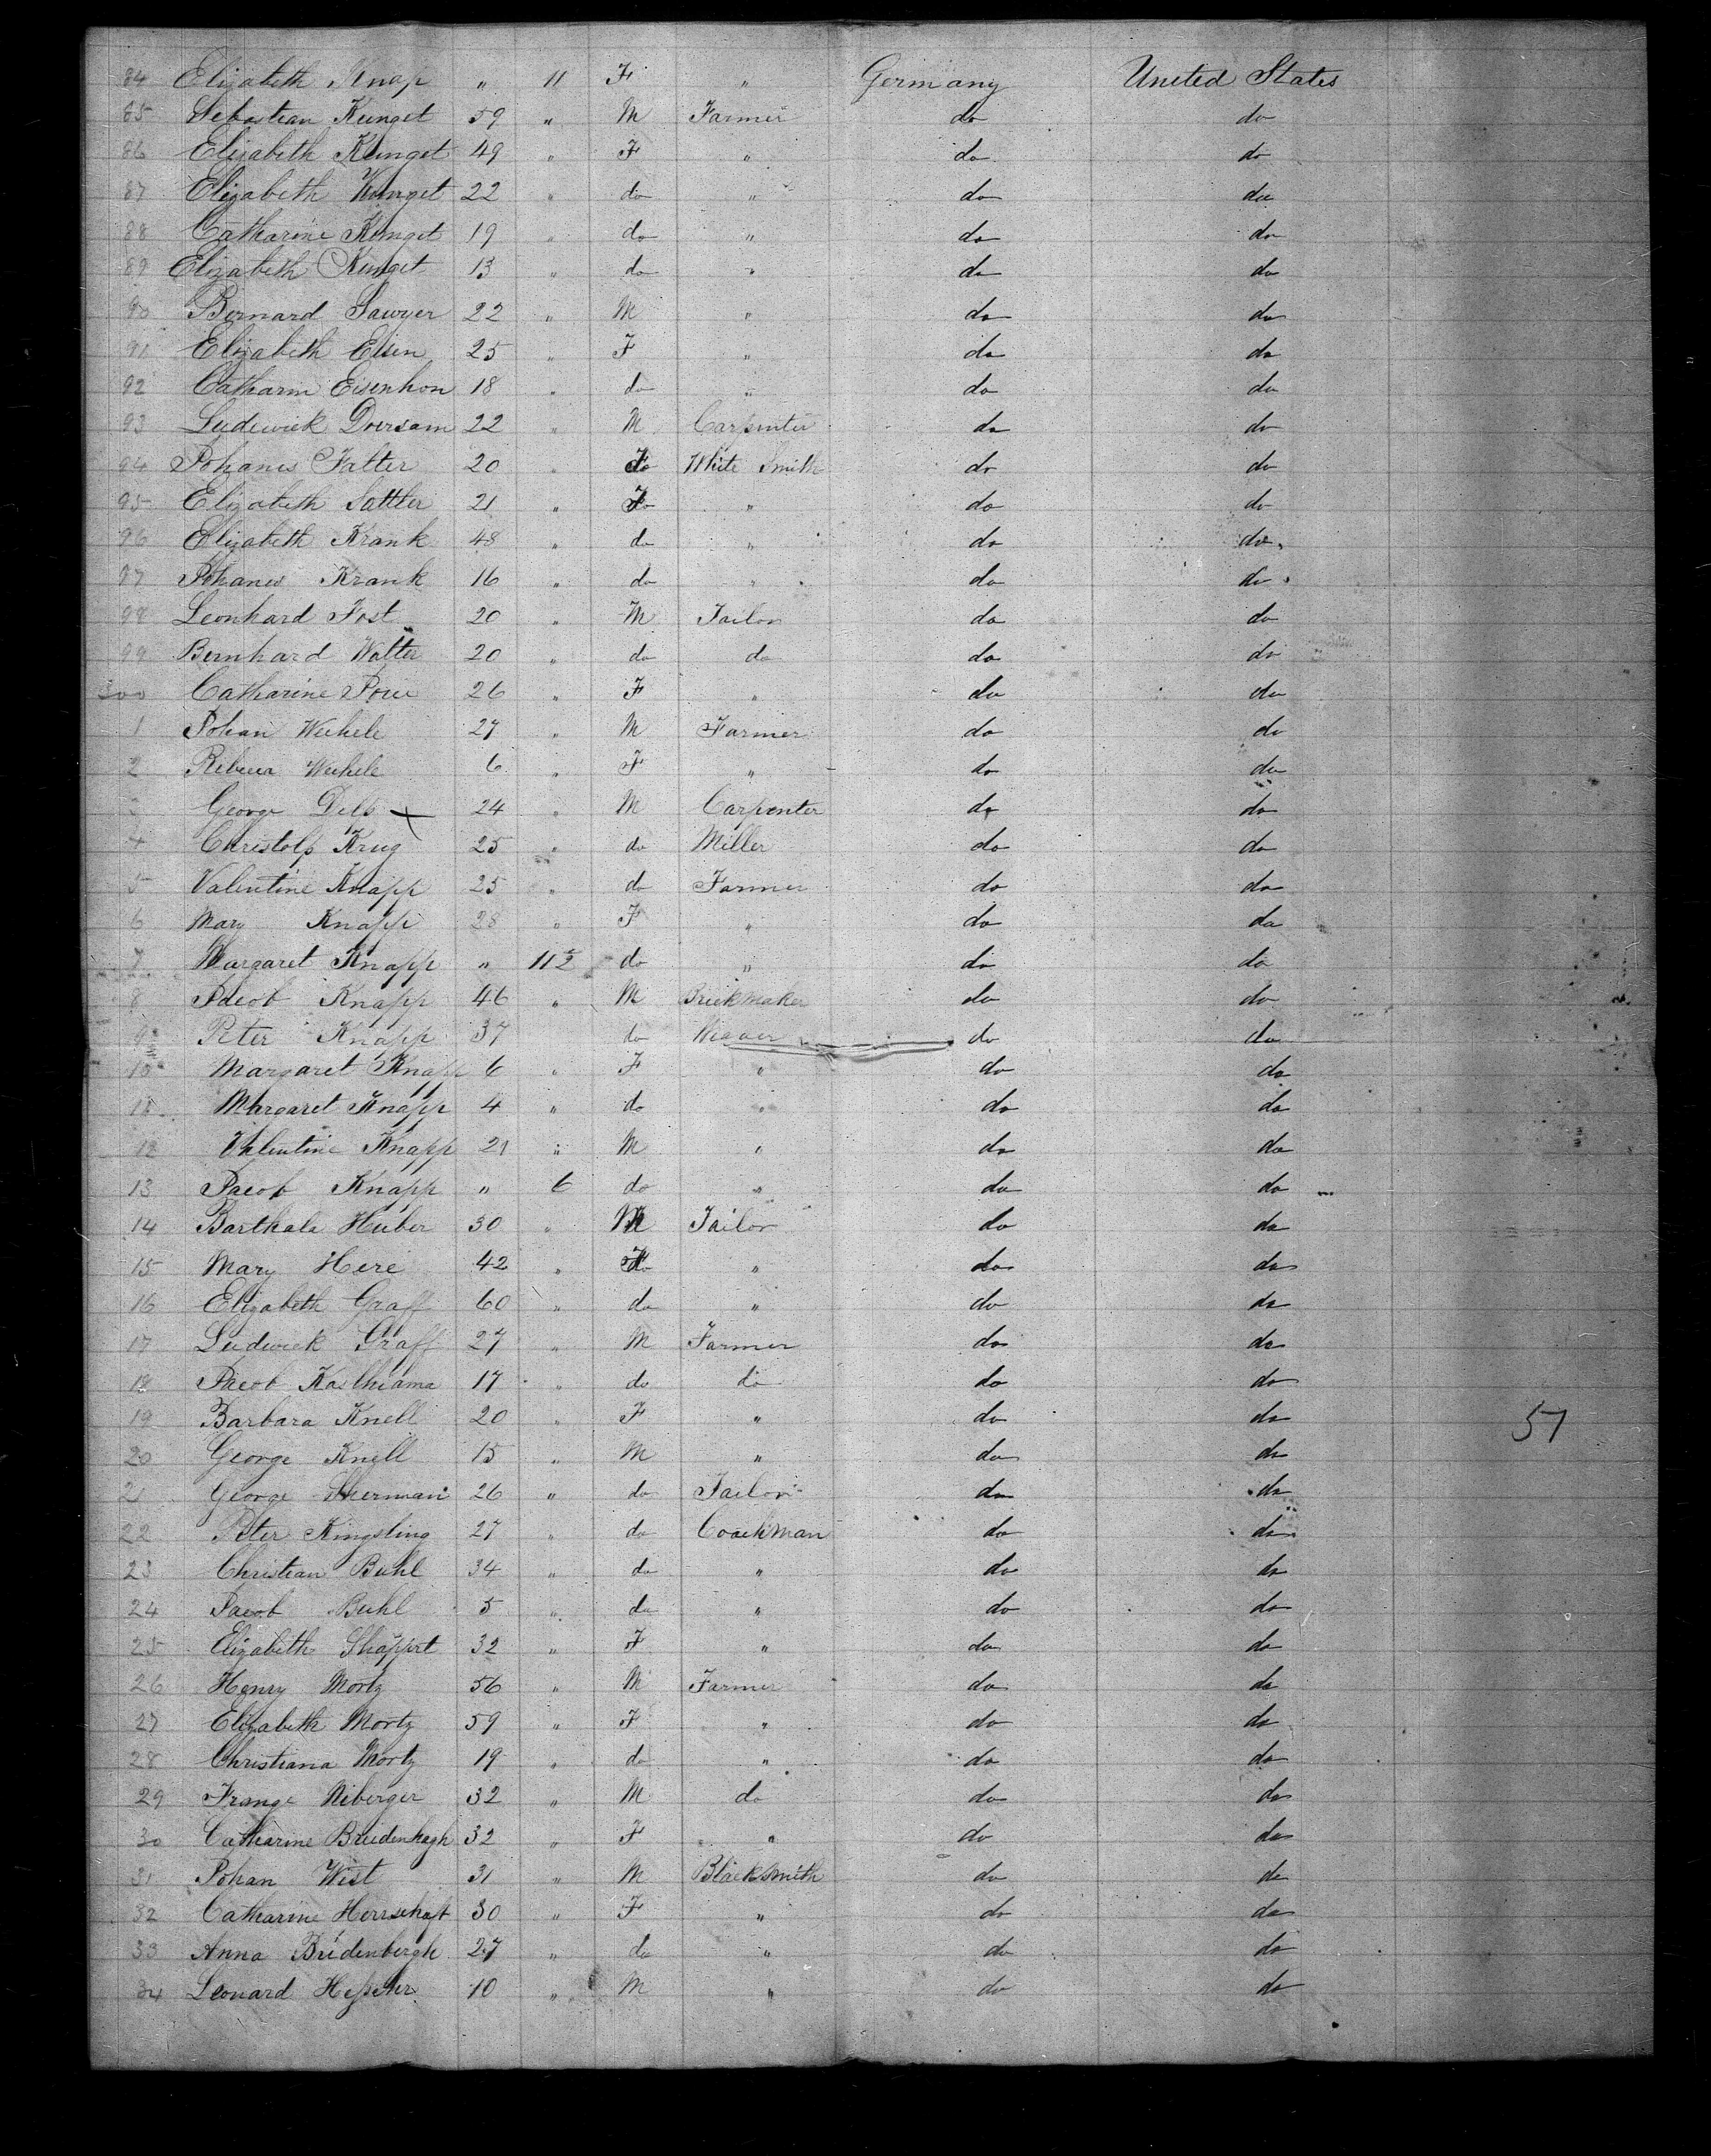 84 Elizabeth Knap " 11 F " Germany United States
85 Sebastian Kunget 59 " M Farmer do do
86 Elizabeth Kunget 49 " F " do do
87 Elizabeth Kunget 22 " do " do do
88 Catharine Kunget 19 " do " do do
89 Elizabeth Kunget 13 " do " do do
90 Bernard Sawyer 22 " M " do do
91 Elizabeth Eisen 25 " F " do do
92 Catharin Eisenhon 18 " do " do do
93 Ludewick Doersam 22 " M Carpenter do do
94 Johanes Falter 20 " do White Smith do do
95 Elizabeth Sattler 21 " F " do do
96 Elizabeth Krank 48 " do " do do
97 Johanes Krank 16 " do " do do
98 Leonhard Fost 20 " M Tailor do do
99 Bernhard Walter 20 " do do do do
300 Catharine 26 " F " do do
1 Johan Weihele 27 " M Farmer do do
2 Rebecca Weihele 6 " F " do do
3 George Delp 24 " M Carpenter do do
4 Christolp Krug 25 " do Miller do do
5 Valentine Knapp 25 " do Farmer do do
6 Mary Knapp 28 " F " do do
7 Margaret Knapp " 11½ do " do do
8 Jacob Knapp 46 " M Brickmaker do do
9 Peter Knapp 37 do Weaver do do
10 Margaret Knapp 6 " F " do do
11 Margaret Knapp 4 " do " do do
12 Valentine Knapp 21 " M " do do
13 Jacob Knapp " 6 do " do do
14 Barthala Huber 30 " M Tailor do do
15 Mary Here 42 " F " do do
16 Elizabeth Graff 60 " do " do do
17 Ludewick Graff 27 " M Farmer do do
18 Jacob Kaslhiama 17 " do do do do
19 Barbara Knell 20 " F " do do 57
20 George Knell 15 " M " do do
21 George Sherman 26 " do Tailor do do
22 Peter Kingsling 27 " do Coachman do do
23 Christian Buhl 34 " do " do do
24 Jacob Buhl 5 " do " do do
25 Elizabeth Shappert 32 " F " do do
26 Henry Mortz 56 " M Farmer do do
27 Elizabeth Mortz 59 " F " do do
28 Christiana Mortz 19 " do " do do
29 Frange Niberger 32 " M do do do
30 Catharine Breidenhagh 32 " F " do do
31 Johan Wist 31 " M Blacksmith do do
32 Catharine Herrschaft 30 " F " do do
33 Anna Bridenbergh 27 " do " do do
34 Leonard 10 " M " do do